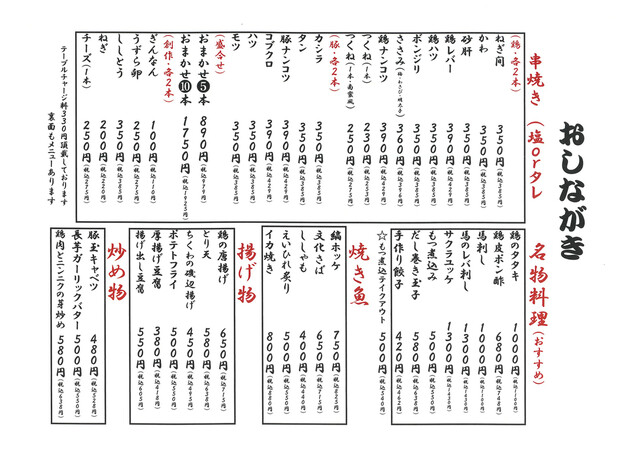 おしながき
串焼き（塩orタレ）
（鶏・各2本）
ねぎ間 350円（税込385円）
かわ 350円（税込385円）
砂肝 350円（税込385円）
鶏レバー 390円（税込429円）
鶏ハツ 350円（税込385円）
ボンジリ 350円（税込385円）
ささみ（梅・わさび・明太子） 360円（税込396円）
鶏ナンコツ 390円（税込429円）
つくね（1本） 230円（税込253円）
つくね（1本・南蛮風） 250円（税込275円）
（豚・各2本）
カシラ 350円（税込385円）
タン 350円（税込385円）
豚ナンコツ 390円（税込429円）
コブクロ 390円（税込429円）
ハツ 350円（税込385円）
モツ 350円（税込385円）
（盛合せ）
おまかせ❺本 890円（税込979円）
おまかせ❿本 1750円（税込1925円）
（創作・各2本）
ぎんなん 100円（税込110円）
うずら卵 250円（税込275円）
ししとう 350円（税込385円）
ねぎ 200円（税込220円）
チーズ（1本） 250円（税込275円）
テーブルチャージ料330円頂戴しております
裏面もメニューあります
名物料理（おすすめ）
鶏のタタキ 1000円（税込1100円）
鶏皮ポン酢 680円（税込748円）
馬刺し 1000円（税込1100円）
馬のレバ刺し 1300円（税込1430円）
サクラユッケ 1300円（税込1430円）
もつ煮込み 500円（税込550円）
だし巻き玉子 580円（税込638円）
手作り餃子 420円（税込462円）
☆もつ煮込テイクアウト 500円（税込540円）
焼き魚
縞ホッケ 750円（税込825円）
文化さば 650円（税込715円）
ししゃも 400円（税込440円）
えいひれ炙り 500円（税込550円）
イカ焼き 800円（税込880円）
揚げ物
鶏の唐揚げ 650円（税込715円）
とり天 580円（税込638円）
ちくわの磯辺揚げ 450円（税込495円）
ポテトフライ 500円（税込550円）
厚揚げ豆腐 380円（税込418円）
揚げ出し豆腐 550円（税込605円）
炒め物
豚玉キャベツ 480円（税込528円）
長芋ガーリックバター 500円（税込550円）
鶏肉とニンニクの芽炒め 580円（税込638円）